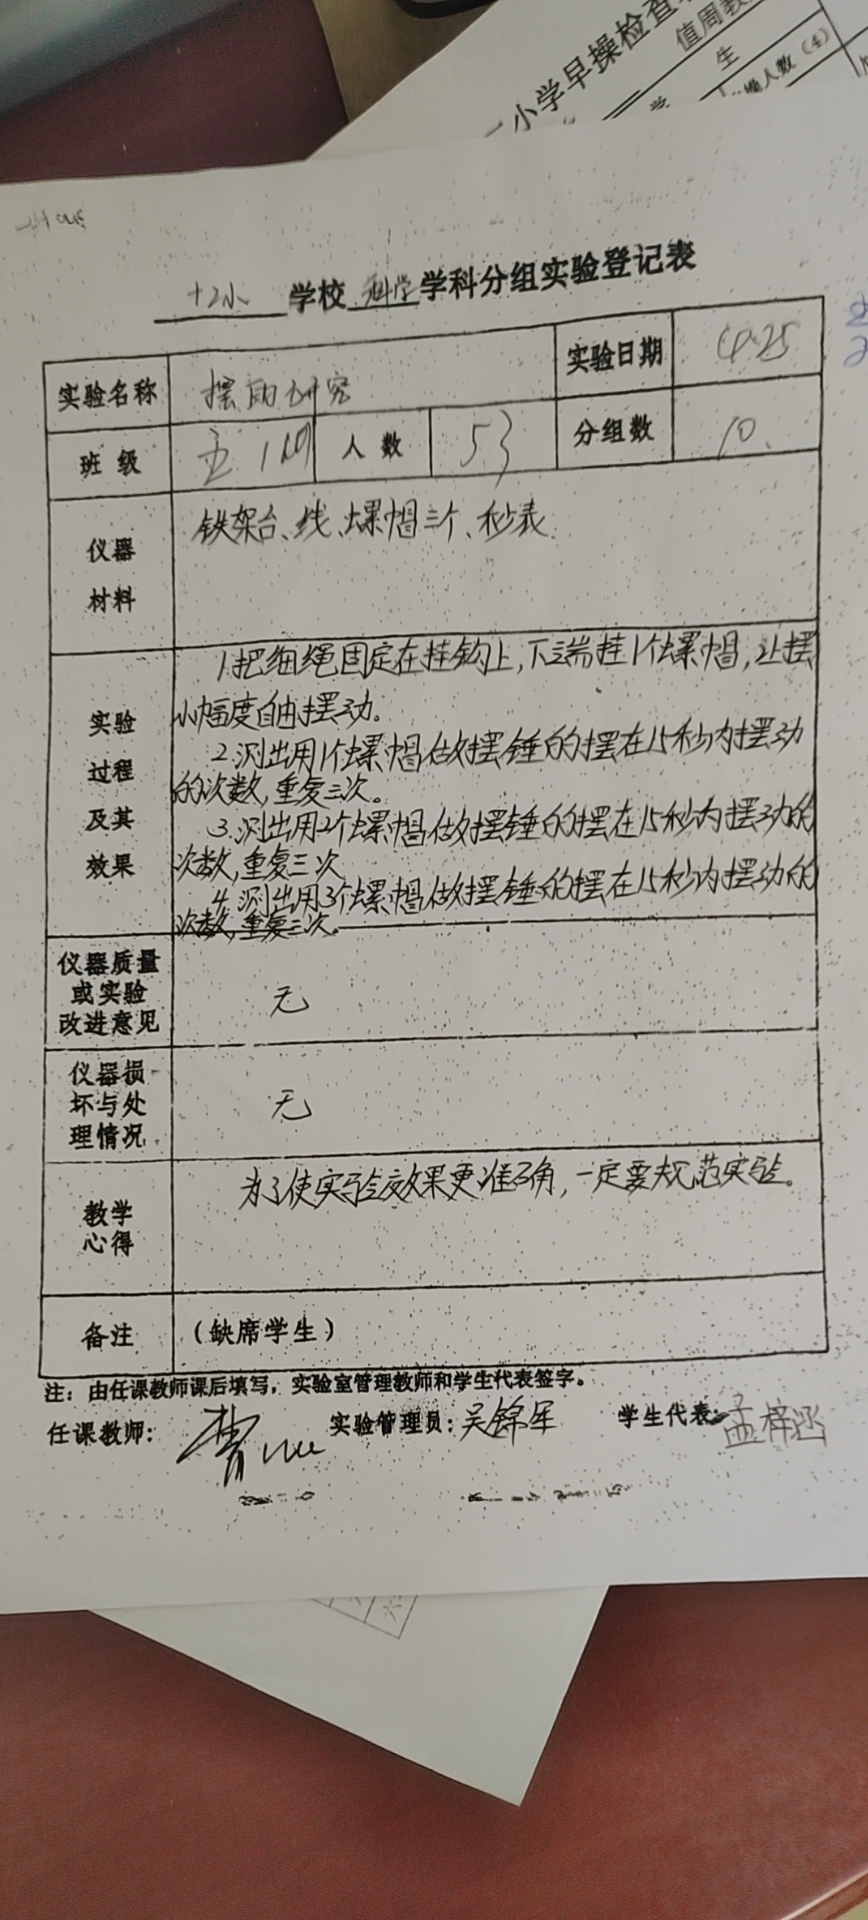 小学早操检查
值周教
生
操人数（4）
十2小 学校 科学 学科分组实验登记表
实验名称 摆的研究 实验日期 4.25
班 级 五 1 人 数 53 分组数 10
仪器
材料
铁架台、线、螺帽三个、秒表
实验
过程
及其
效果
1.把细绳固定在挂钩上，下端挂1个螺帽，让摆
小幅度自由摆动。
2.测出用1个螺帽做摆锤的摆在15秒内摆动
的次数，重复三次。
3.测出用2个螺帽做摆锤的摆在15秒内摆动的
次数，重复三次
4.测出用3个螺帽做摆锤的摆在15秒内摆动的
次数，重复三次。
仪器质量
或实验
改进意见
无
仪器损
坏与处
理情况
无
教学
心得
为了使实验效果更准确，一定要规范实验。
备注 （缺席学生）
注：由任课教师课后填写，实验室管理教师和学生代表签字。
任课教师： 实验管理员：吴锦军 学生代表：孟梓涵